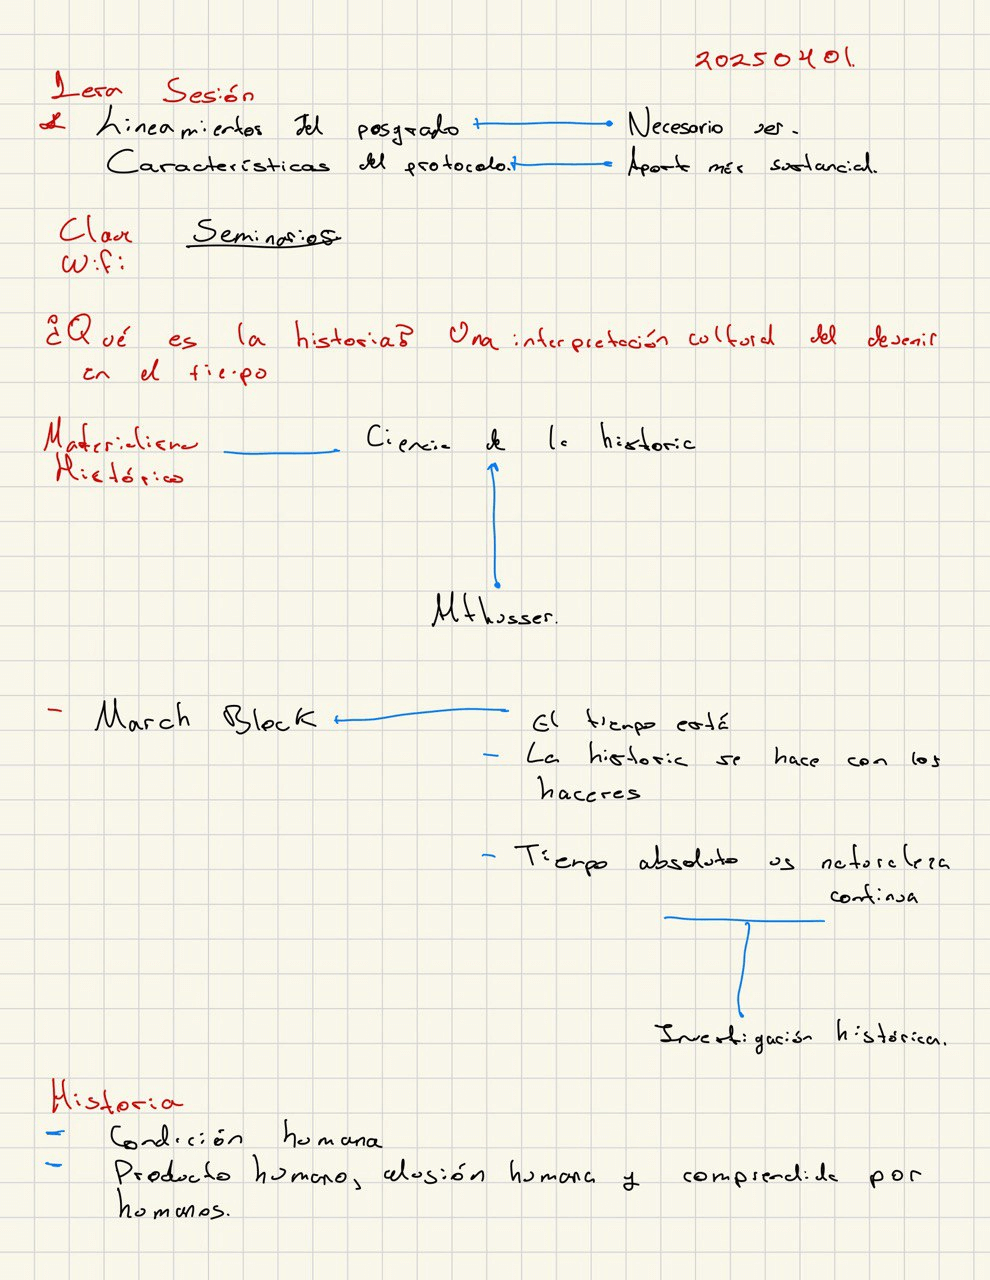 20250401.
1era Sesión
Lineamientos del posgrado Necesario ver.
Características del protocolo. Aporte más sustancial.
Clave Seminarios
Wifi
¿Qué es la historia? Una interpretación cultural del devenir
en el tiempo
Materialismo Ciencia de la historia
Histórico
Althusser.
- March Block El tiempo está
- La historia se hace con los
haceres
- Tiempo absoluto vs naturaleza
continua
Investigación histórica.
Historia
- Condición humana
- Producto humano, alusión humana y comprendida por
humanos.